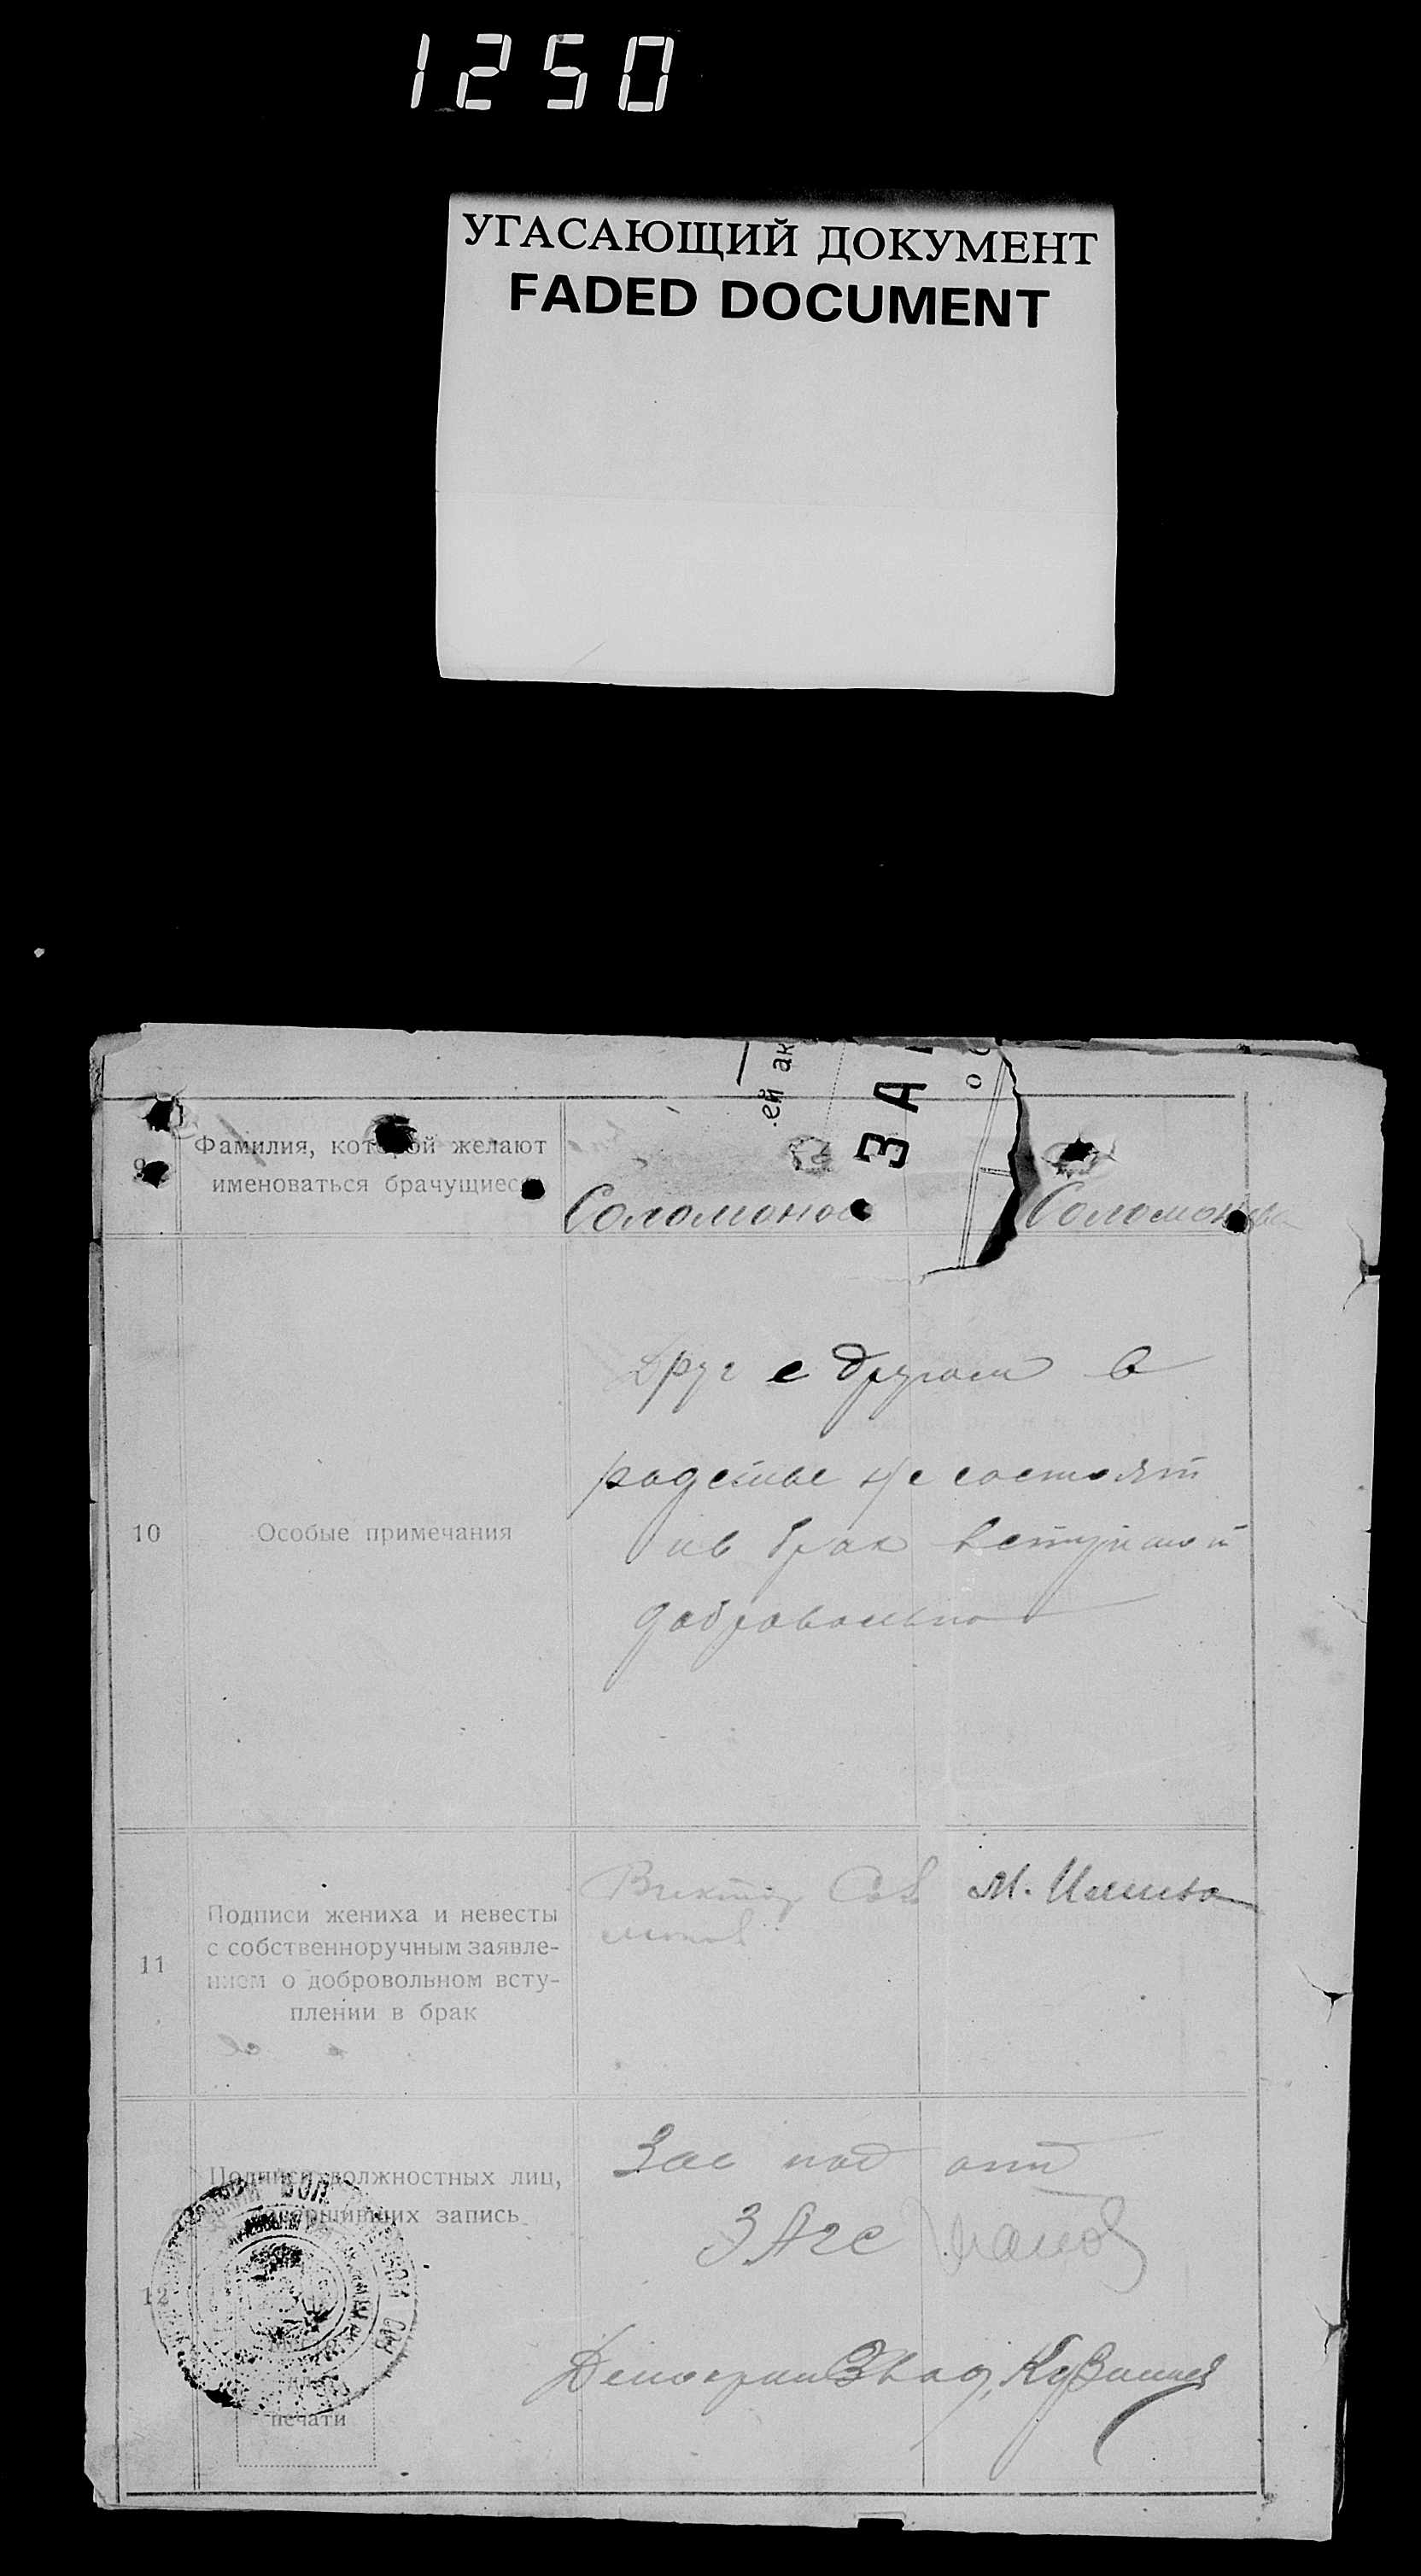 1250
УГАСАЮЩИЙ ДОКУМЕНТ
FADED DOCUMENT
ей ак
ЗА
о
9
Фамилия, которой желают
именоваться брачущиеся
Соломонов
Соломонова
Друг с другом в
родстве не состоят
10
Особые примечания
и в брак вступают
добровольно
11
Подписи жениха и невесты
с собственноручным заявле-
нием о добровольном всту-
плении в брак
Виктор Соло
монов
М.
12
Подписи должностных лиц,
совершивших запись
Зав под отд
ЗАГС
Делопроизвод.
печати